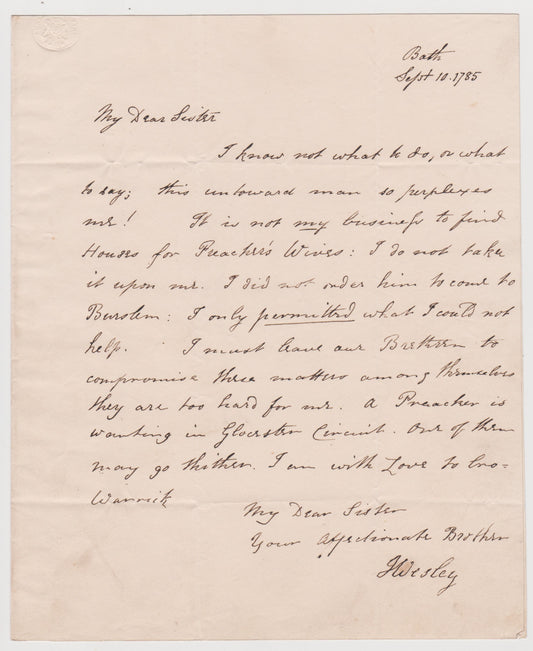 Bath
Sept 10. 1785
My Dear Sister
I know not what to do, or what
to say; this untoward man so perplexes
me! It is not my business to find
Houses for Preacher's Wives: I do not take
it upon me. I did not order him to come to
Burslem: I only permitted what I could not
help. I must leave our Brethren to
compromise these matters among themselves
they are too hard for me. A Preacher is
wanting in Glocester Circuit. One of them
may go thither. I am with Love to bro-
Warrick
My Dear Sister
Your Affectionate Brother
JWesley